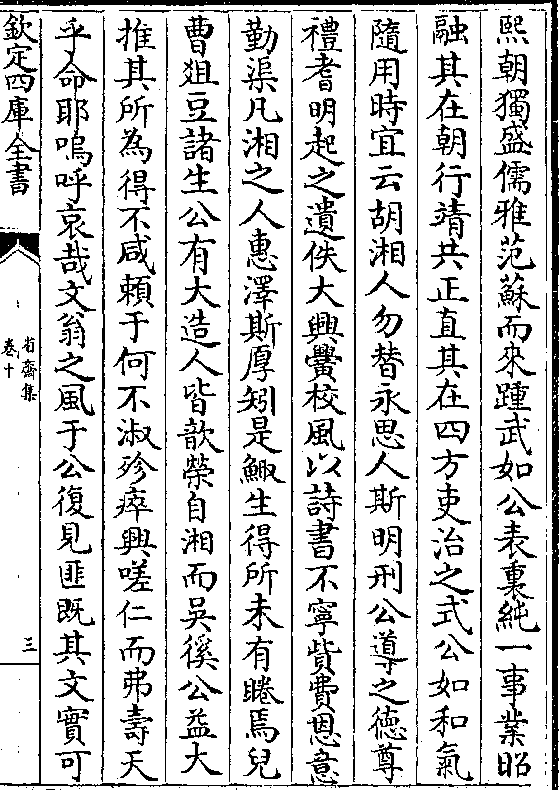 熙朝獨盛儒雅范蘇而來踵武如公表裏純一事業昭
融其在朝行靖共正直其在四方吏治之式公如和氣
隨用時宜云胡湘人勿替永思人斯明刑公導之徳尊
禮耆明起之遺佚大興黌校風以詩書不寧貲費恩意
勤渠凡湘之人惠澤斯厚矧是鯫生得所未有睠焉兒
曹俎豆諸生公有大造人皆歆榮自湘而吳徯公益大
推其所為得不咸賴于何不淑殄瘁興嗟仁而弗壽天
乎命耶嗚呼哀哉文翁之風于公復見匪既其文實可
欽定四庫全書
省齋集
卷十
三